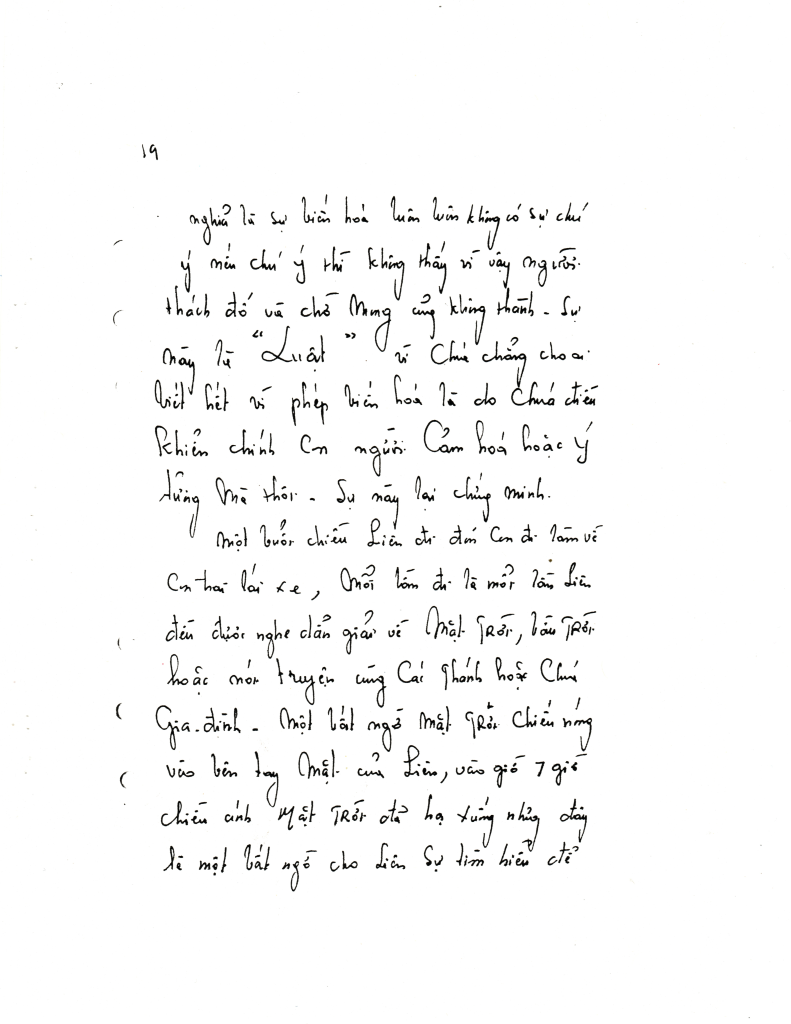 19
nghiả là sự biến hoà luôn luôn không có sự chú
ý nếu chú ý thì không thấy vì vậy người
thách đố và chờ Mong củng không thành - Sự
này là "Luật" vì Chúa chẳng cho ai
biết hết vì phép biến hoá là do Chúa điều
khiển chính Con người Cảm hoá hoặc ý
tưởng Mà thôi - Sự này lại chứng minh.
Một buổi chiều Liên đi đón Con đi làm về
Con trai lái xe, Mỗi lần đi là mổi lần Liên
đều được nghe dẩn giải về Mặt TRời, bầu TRời
hoặc nói truyện cùng Các Thánh hoặc Chúa
Gia-đình - Một bất ngờ Mặt TRời Chiếu nóng
vào bên tay Mặt của Liên, vào giờ 7 giờ
chiều ánh Mặt TRời đả hạ xuống nhưng đây
là một bất ngờ cho Liên Sự tìm hiểu để